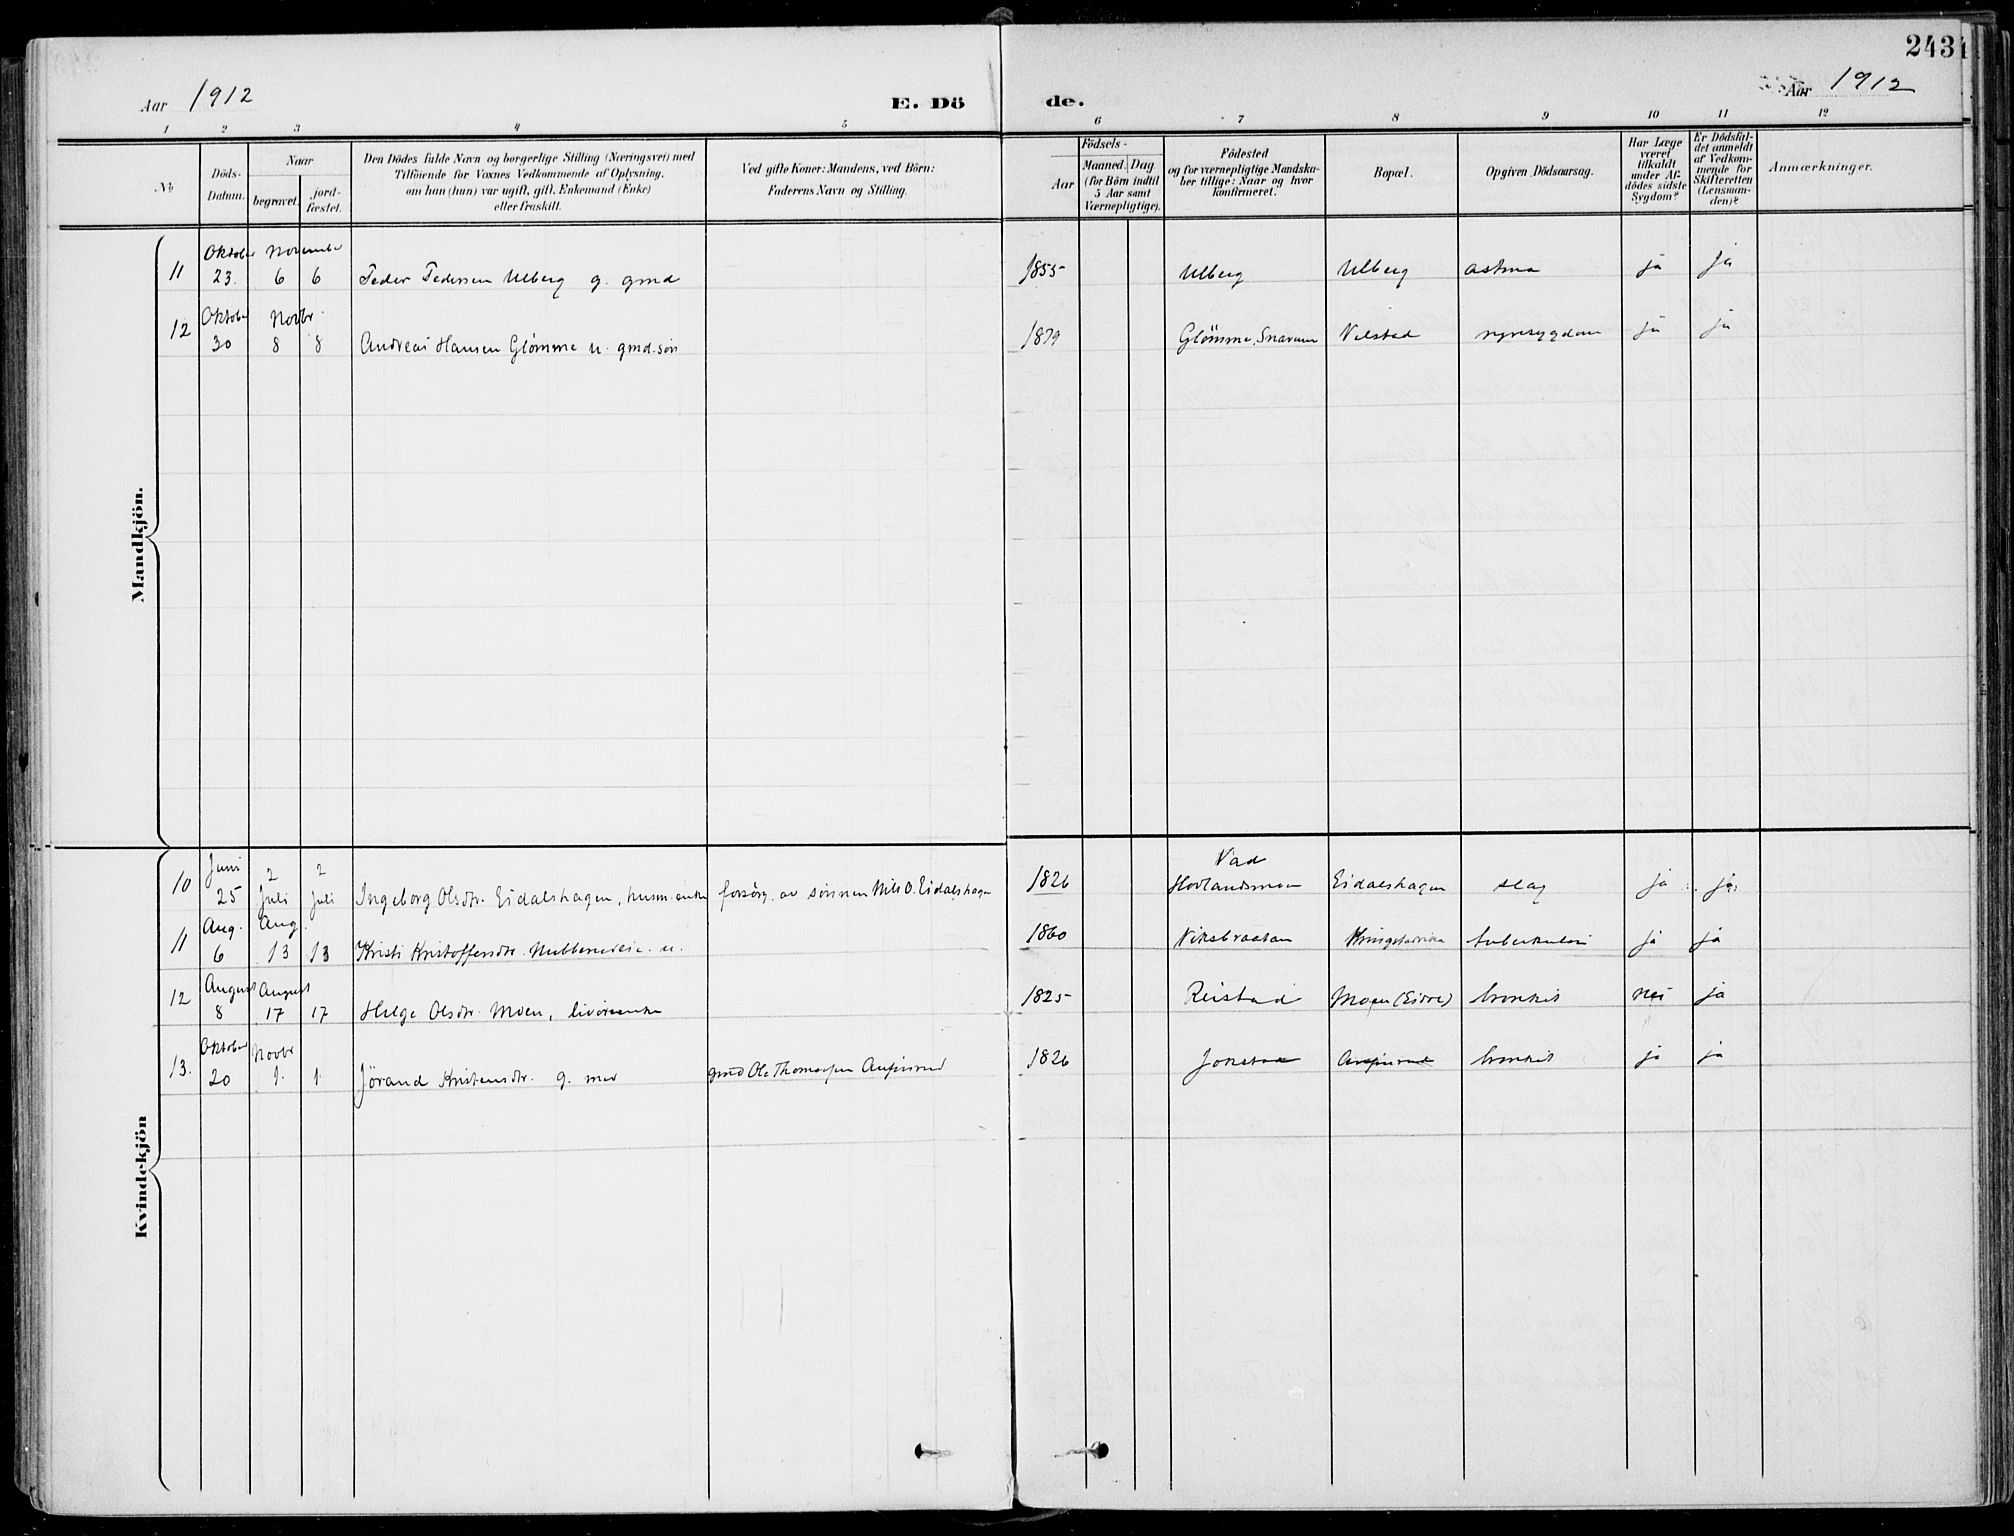 243
Aar 1912 E. Dö de. Aar 1912
1 2 3 4 5 6 7 8 9 10 11 12
No
Döds-Datum.
Naar
begravet.
jord-fæstet.
Den Dödes fulde Navn og borgerlige Stilling (Næringsvei) med
Tilföiende for Voxnes Vedkommende af Oplysning,
om han (hun) var ugift, gift, Enkemand (Enke)
eller fraskilt.
Ved gifte Koner: Mandens, ved Börn:
Faderens Navn og Stilling.
Födsels-
Aar
Maaned. Dag
(for Börn indtil
5 Aar samt
Værnepligtige).
Födested
og for værnepligtige Mandska-
ber tillige: Naar og hvor
konfirmeret.
Bopæl.
Opgiven Dödsaarsag.
Har Læge
været
tilkaldt
under Af-
dödes sidste
Sygdom?
Er Dödsfal-
det anmeldt
af Vedkom-
mende for
Skifteretten
(Lensman-
den)?
Anmærkninger.
Mandkjön.
11 Oktober 23. November 6 6 Peder Pedersen Ulberg g. gmd 1855 Ulberg Ulberg astma ja ja
12 Oktober 30 Novbr. 8 8 Andreas Hansen Glömme u. gmd.sön 1879 Glömme, Snarum Vilstad nyresygdom ja ja
Kvindekjön
10 Juni 25 2 Juli 2 Juli Ingeborg Olsdtr. Eidalshagen, husm.enke forsörg. av sönnen Nils O. Eidalshagen 1826 Vad Hovlandsmoen Eidalshagen slag ja ja
11 Aug. 6 Aug. 13 13 Kristi Kristoffersdtr. u. 1860 Viksbraatan tuberkulose ja ja
12 August 8 August 17 17 Helge Olsdtr. Moen, livöreenke 1825 Reistad Moen (Eidre) bronkit nei ja
13. Oktober 20 Novbr 1. 1 Jörand Kristensdtr. g. med gmd Ole Thomassen 1826 Jokstad bronkit ja ja